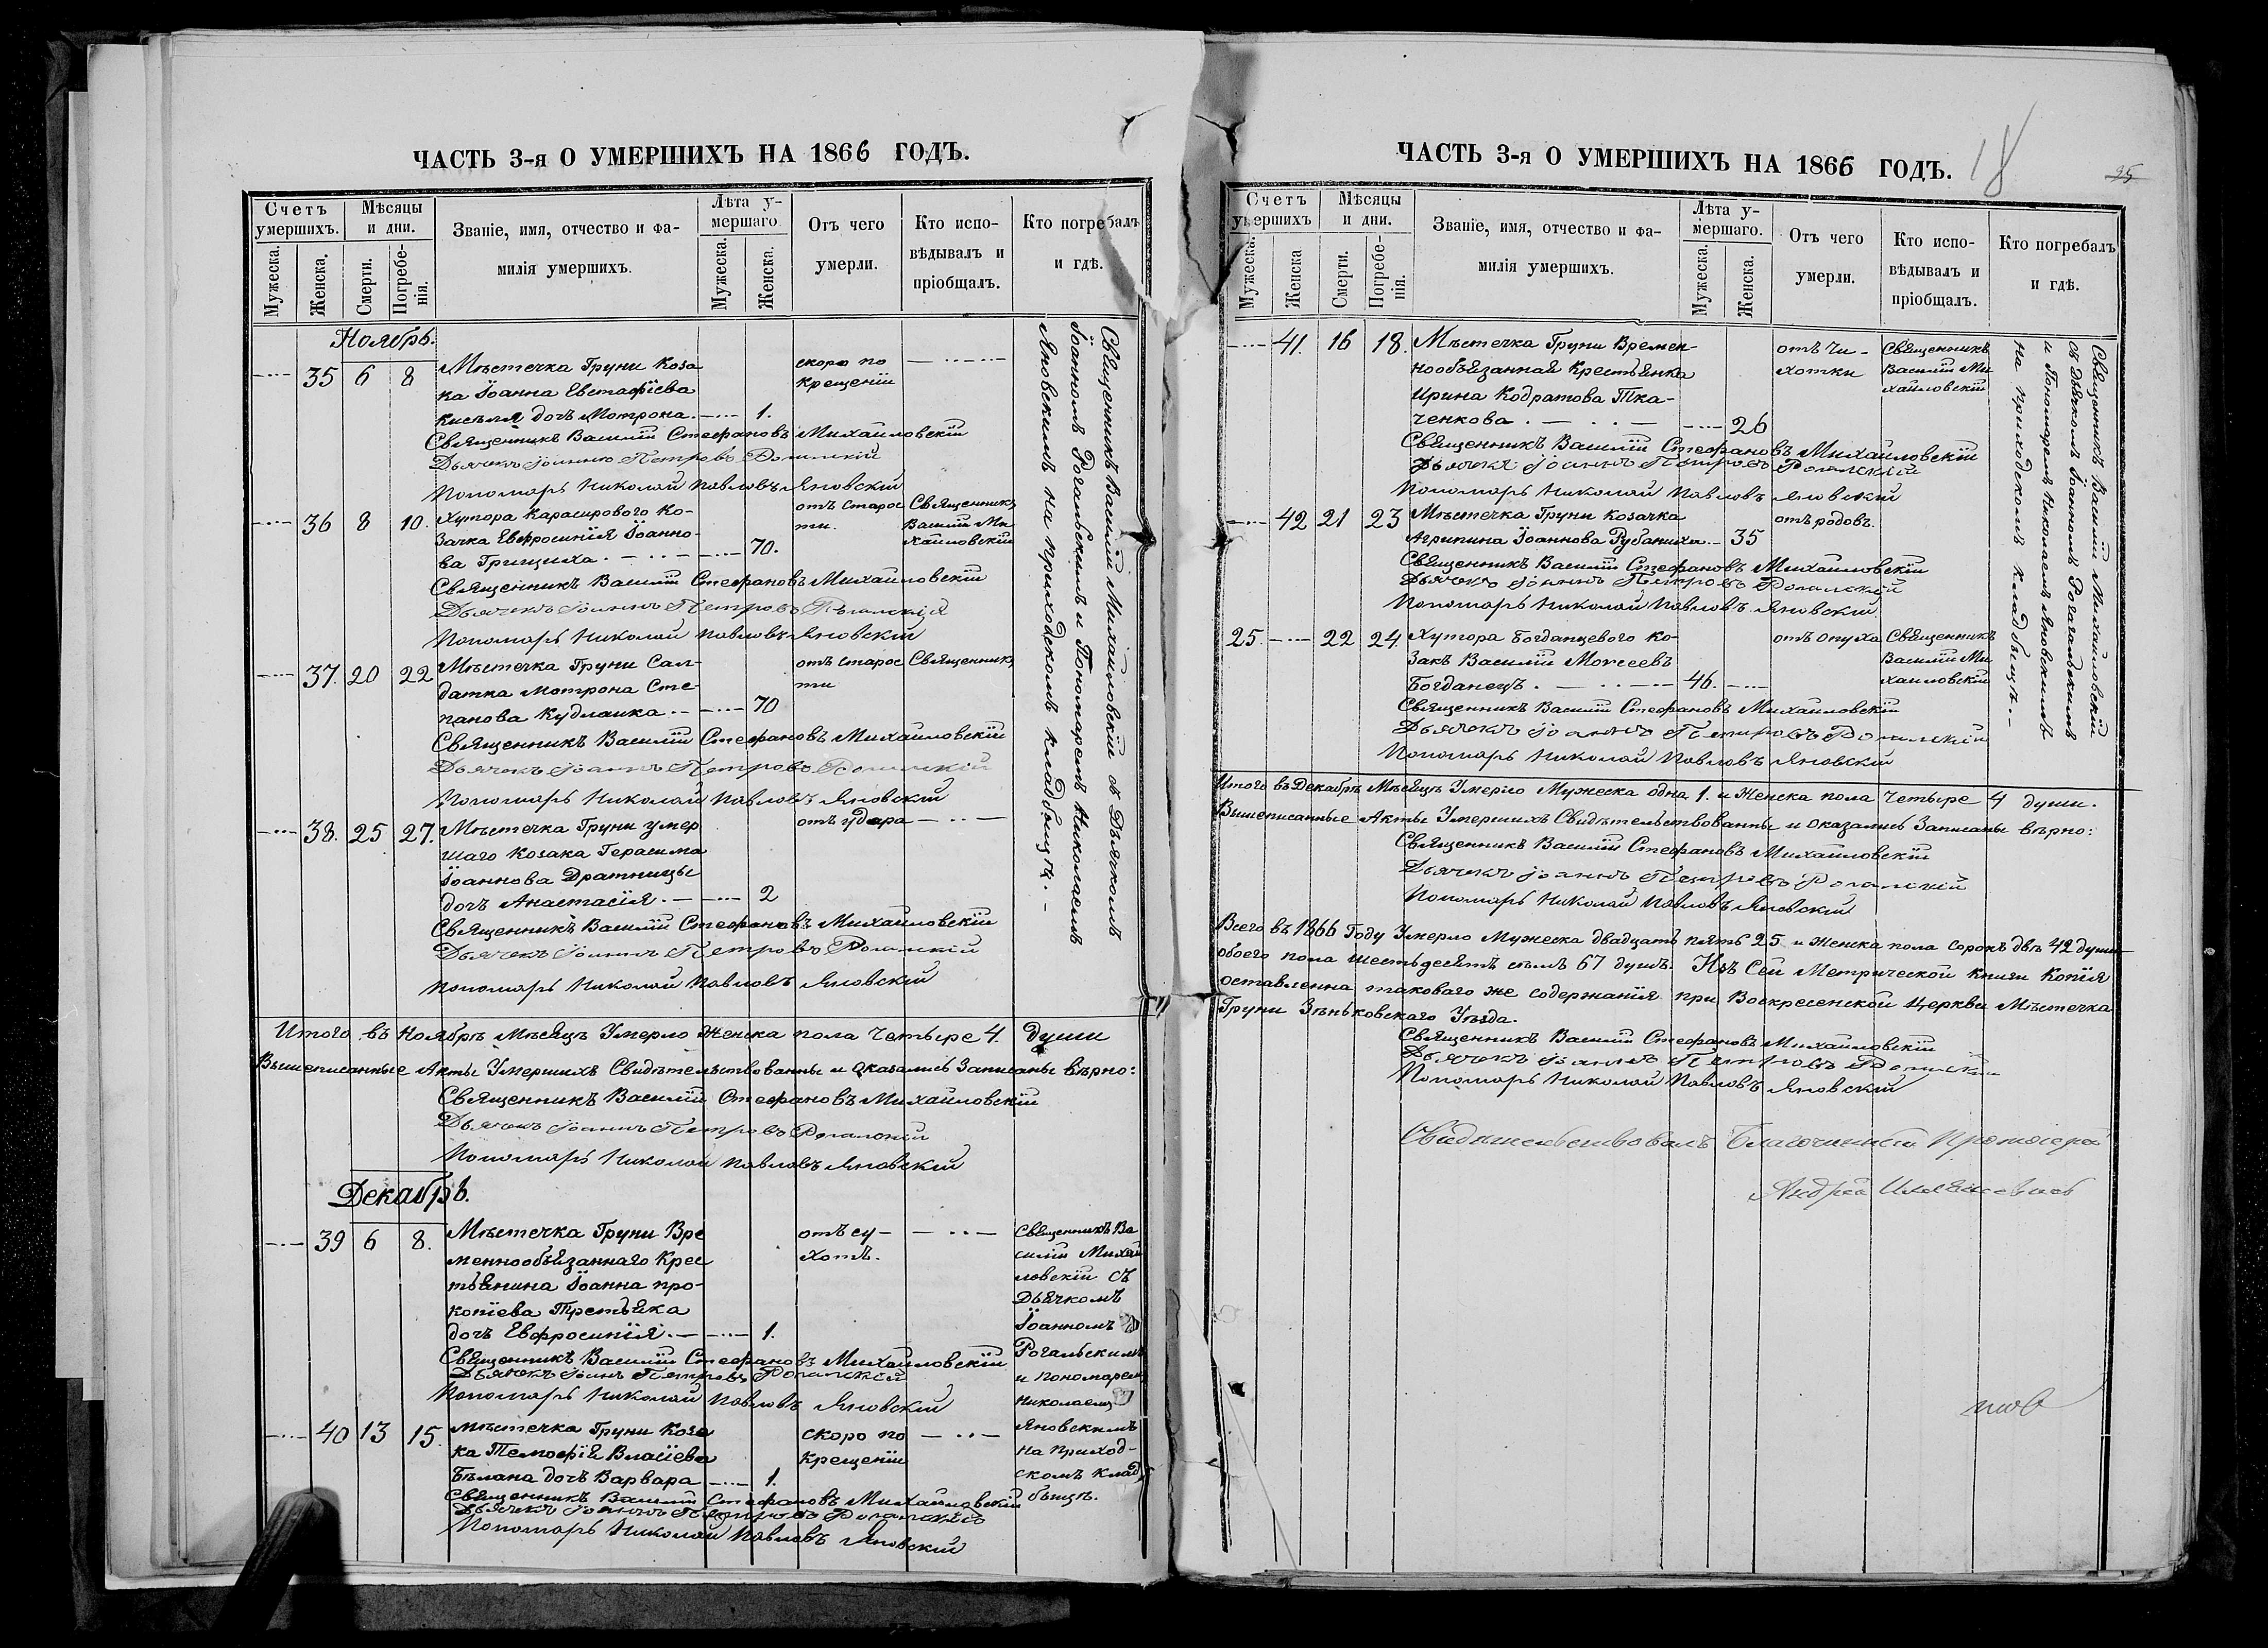 ЧАСТЬ 3-я О УМЕРШИХЪ НА 1866 ГОДЪ.
Счетъ умершихъ.
Мѣсяцы и дни.
Званіе, имя, отчество и фа-
милія умершихъ.
Лѣта у-
мершаго
Отъ чего
умерли.
Кто испо-
вѣдывалъ и
пріобщалъ.
Кто погребалъ
и гдѣ.
Мужеска.
Женска.
Смерти.
Погребе-
нія.
Мужеска.
Женска.
Ноябрь.
35 6 8 Мѣстечка Груни Коза скоро по
ка Іоанна Евстафіева крещеніи
Кисѣля дочь Мотрона. 1.
Священникъ Василій Стефановъ Михайловскій
Дьячекъ Іоаннъ Петровъ Рогальскій
Пономарь Николай Павловъ Яновскій
36 8 10. Хутора Карасирового Ко- отъ старос Священникъ
зачка Евфросинія Іоанно- ти. Василій Ми
ва Грищиха. 70. хайловскій
Священникъ Василій Стефановъ Михайловскій
Дьячекъ Іоаннъ Петровъ Рогальскій
Пономарь Николай Павловъ Яновскій
37. 20 22 Мѣстечка Груни Сал- отъ старос Священникъ
датка Мотрона Сте- ти
панова Кудлаика 70
Священникъ Василій Стефановъ Михайловскій
Дьячекъ Іоаннъ Петровъ Рогальскій
Пономарь Николай Павловъ Яновскій
38. 25 27. Мѣстечка Груни умер отъ удара
шаго Козака Герасима
Іоаннова Дратницы
дочь Анастасія. 2
Священникъ Василій Стефановъ Михайловскій
Дьячекъ Іоаннъ Петровъ Рогальскій
Пономарь Николай Павловъ Яновскій
Священникъ Василій Михайловскій съ Дьячкомъ
Іоанномъ Рогальскимъ и Пономаремъ Николаемъ
Яновскимъ на приходскомъ кладбищѣ.
Итого въ Ноябрѣ Мѣсяцѣ Умерло Женска пола Четыре 4. души
Вышеписанные Акты Умершихъ Свидѣтельствованны и оказались Записаны вѣрно:
Священникъ Василій Стефановъ Михайловскій
Дьячекъ Іоаннъ Петровъ Рогальскій
Пономарь Николай Павловъ Яновскій
Декабрь.
39 6 8. Мѣстечка Груни Вре отъ су-
меннообязаннаго Крес хотъ.
тьянина Іоанна Про-
копіева Третьяка
дочь Евфросинія. 1.
Священникъ Ва
силій Михай
ловскій съ
Дьячкомъ
Іоанномъ
Рогальскимъ
и Пономарем
Николаем
Яновскимъ
на приход-
скомъ клад
бищѣ.
Священникъ Василій Стефановъ Михайловскій
Дьячекъ Іоаннъ Петровъ Рогальскій
Пономарь Николай Павловъ Яновскій
40 13 15. Мѣстечка Груни Коза скоро по
ка Темофія Власіева крещеніи
Бѣлана дочь Варвара 1.
Священникъ Василій Стефановъ Михайловскій
Дьячекъ Іоаннъ Петровъ Рогальскій
Пономарь Николай Павловъ Яновскій
ЧАСТЬ 3-я О УМЕРШИХЪ НА 1866 ГОДЪ.
18
25
Счетъ умершихъ
Мѣсяцы и дни.
Званіе, имя, отчество и фа-
милія умершихъ.
Лѣта у-
мершаго.
Отъ чего
умерли.
Кто испо-
вѣдывалъ и
пріобщалъ.
Кто погребалъ
и гдѣ.
Мужеска.
Женска
Смерти.
Погребе-
нія.
Мужеска.
Женска.
41. 16 18. Мѣстечка Груни Времен- отъ чи- Священникъ
нообязанная Крестьянка хотки Василій Ми
Ирина Кодратова Тка- хайловскій
ченкова. 26
Священникъ Василій Стефановъ Михайловскій
Дьячекъ Іоаннъ Петровъ Рогальскій
Пономарь Николай Павловъ Яновскій
42 21 23 Мѣстечка Груни Козачка отъ родовъ.
Агрипина Іоаннова Рубаниха 35
Священникъ Василій Стефановъ Михайловскій
Дьячекъ Іоаннъ Петровъ Рогальскій
Пономарь Николай Павловъ Яновскій
25. 22 24. Хутора Богданцевого Ко- отъ опуха Священникъ
закъ Василій Моисеевъ Василій Ми
Богданецъ. 46. хайловскій
Священникъ Василій Стефановъ Михайловскій
Дьячекъ Іоаннъ Петровъ Рогальскій
Пономарь Николай Павловъ Яновскій
Священникъ Василій Михайловскій
съ Дьячкомъ Іоанномъ Рогальскимъ
и Пономаремъ Николаемъ Яновскимъ
на приходскомъ кладбищѣ.
Итого въ Декабрѣ Мѣсяцѣ Умерло Мужеска одна 1. и Женска пола Четыре 4 души.
Вышеписанные Акты Умершихъ Свидѣтельствованны и оказались Записаны вѣрно:
Священникъ Василій Стефановъ Михайловскій
Дьячекъ Іоаннъ Петровъ Рогальскій
Пономарь Николай Павловъ Яновскій
Всего въ 1866 Году Умерло Мужеска двадцать пять 25 и Женска пола сорокъ двѣ 42 души
обоего пола шестьдесятъ семь 67 душъ. Изъ Сей Метрической книги Копія
оставленна таковаго же содержанія при Воскресенской Церкви Мѣстечка
Груни Зѣньковского Уѣзда.
Священникъ Василій Стефановъ Михайловскій
Дьячекъ Іоаннъ Петровъ Рогальскій
Пономарь Николай Павловъ Яновскій
Свидѣтельствовалъ Благочинный Протоіерей
Андрей